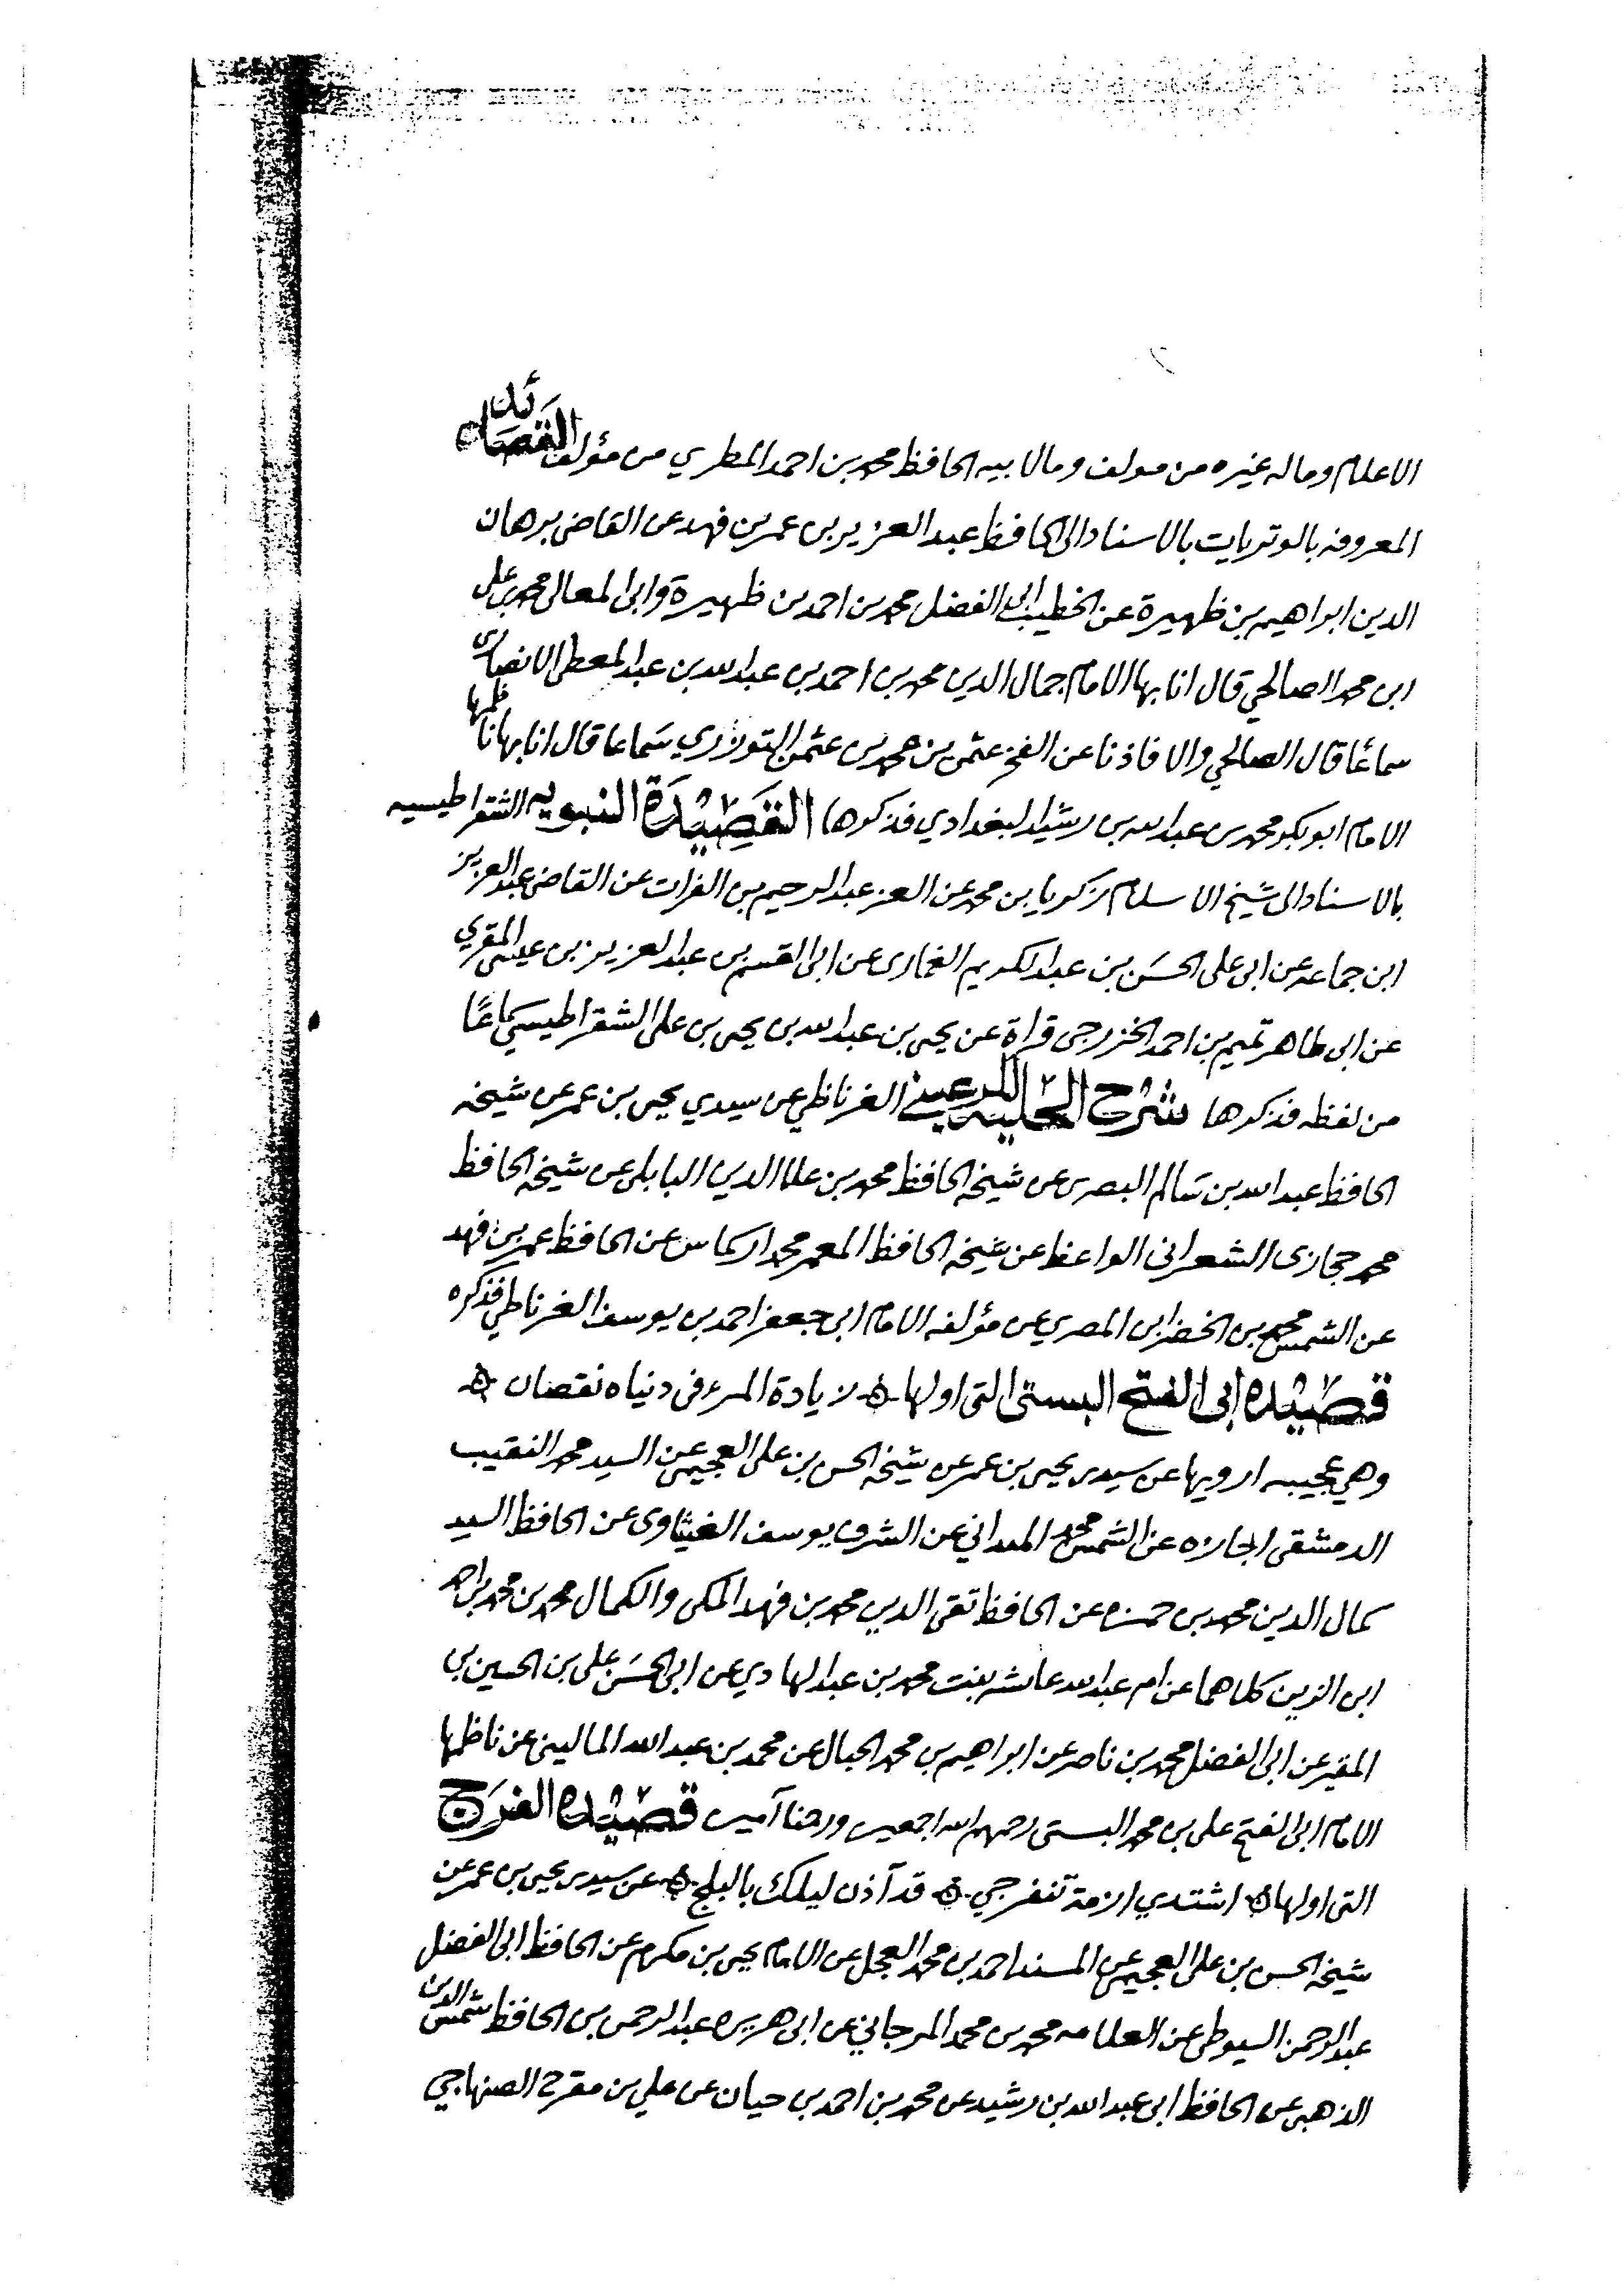 الاعلام وماله غيره من مولف ومالابيه الحافظ محمد بن احمد المطري من مؤلف القصائد
المعروفه بالوتريات بالاسناد الى الحافظ عبد العزيز بن عمر بن فهد عن القاضى برهان
الدين ابراهيم بن ظهيرة عن الخطيب ابى الفضل محمد بن احمد بن ظهيرة وابى المعالى محمد بن على
ابن محمد الصالحي قال انا بها الامام جمال الدين محمد بن احمد بن عبد الله بن عبد المعطى الانصارى
سماعًا قال الصالحي والا فاذنا عن الفخر عثمن بن محمد بن عثمن التوزري سَماعا قال انا بها ناظمها
الامام ابو بكر محمد بن عبد الله بن رشيد البغدادي فذكرها القَصِيْدَة النبويه الشقراطيسيه
بالاسناد الى شيخ الاسلام زكريا بن محمد عن العز عبد الرحيم بن الفرات عن القاضى عبد العزيز
ابن جماعه عن ابى على الحسَن بن عبد الكريم الغمارى عن ابى القسم بن عبد العزيز بن عيسى المقري
عن ابى طاهر تميم بن احمد الخزرجى قراة عن يحيى بن عبد الله بن يحيى بن على الشقراطيسي سماعًا
من لفظه فذكرها شرح الحلية للرعيني الغرناطي عن سيدي يحيى بن عمر عن شيخه
الحافظ عبد الله بن سَالم البصرى عن شيخه الحافظ محمد بن علا الدين البابلى عن شيخه الحافظ
محمد حجازى الشعرانى الواعظ عن شيخه الحافظ المعمر محمد اركماس عن الحافظ عمر بن فهد
عن الشمس محمد بن الخضر ابن المصري عن مؤلفه الامام ابى جعفر احمد بن يوسف الغرناطي فذكره
قصيْده ابى الفتح البستى التى اولها ه زيادة المرء فى دنياه نقصان ه
وهي عجيبه ارويها عن سيدى يحيى بن عمر عن شيخه الحسن بن على العجيمى عن السيد محمد النقيب
الدمشقى اجازه عن الشمس محمد الميدانى عن الشرف يوسف الغيثاوى عن الحافظ السيد
كمال الدين محمد بن حمزه عن الحافظ تقى الدين محمد بن فهد المكى والكمال محمد بن محمد بن احمد
ابن الزين كلاهما عن ام عبد الله عائشه بنت محمد بن عبد الهادي عن ابى الحسَن على بن الحسين بن
المقير عن ابى الفضل محمد بن ناصر عن ابراهيم بن محمد الحبال عن محمد بن عبد الله المالينى عن ناظمها
الامام ابى الفتح على بن محمد البستى رحمهم الله اجمعين ورحمنا آمين قصيْده الفرَج
التى اولها ه اشتدي ازمة تنفرجي ه قد آذن ليلك بالبلج ه عن سيدى يحيى بن عمر عن
شيخه الحسن بن على العجيمى عن المسند احمد بن محمد العجل عن الامام يحيى بن مكرم عن الحافظ ابى الفضل
عبد الرحمن السيوطى عن العلامه محمد بن محمد المرجاني عن ابى هريره عبد الرحمن بن الحافظ شمس الدين
الذهبى عن الحافظ ابى عبد الله بن رشيد عن محمد بن احمد بن حيان عن علي بن مقرح الصنهاجي